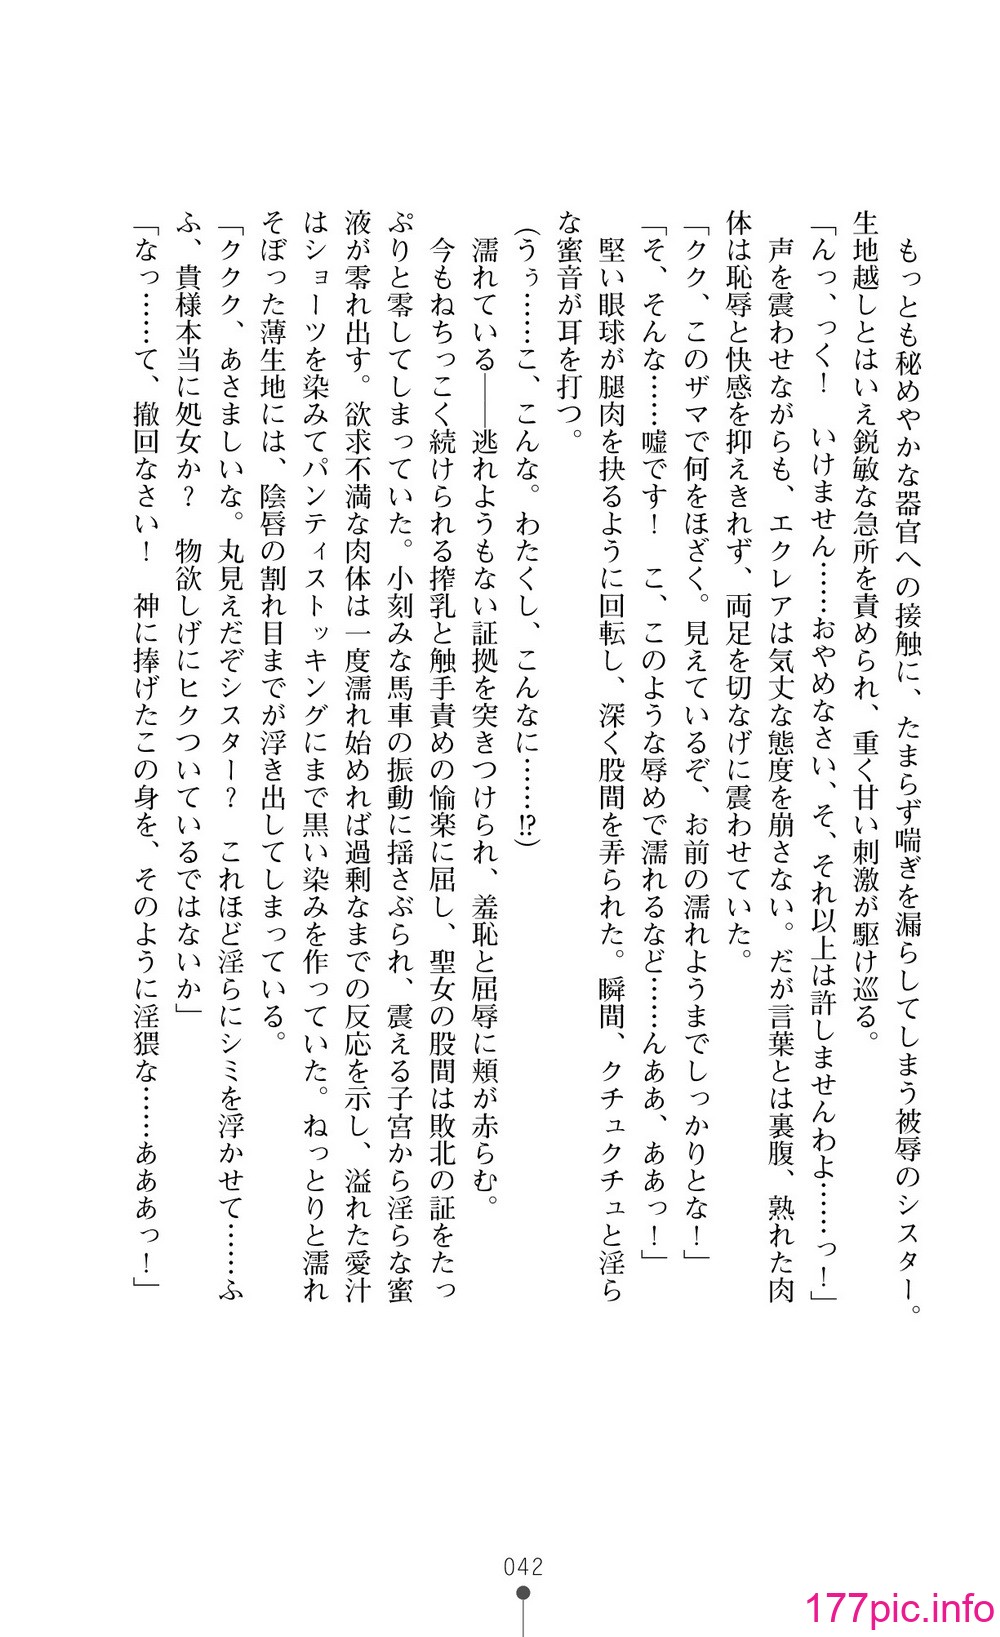 もっとも秘めやかな器官への接触に、たまらず喘ぎを漏らしてしまう被辱のシスター。
生地越しとはいえ鋭敏な急所を責められ、重く甘い刺激が駆け巡る。
「んっ、っく！　いけません……おやめなさい、そ、それ以上は許しませんわよ……っ！」
声を震わせながらも、エクレアは気丈な態度を崩さない。だが言葉とは裏腹、熟れた肉
体は恥辱と快感を抑えきれず、両足を切なげに震わせていた。
「クク、このザマで何をほざく。見えているぞ、お前の濡れようまでしっかりとな！」
「そ、そんな……嘘です！　こ、このような辱めで濡れるなど……んああ、ああっ！」
堅い眼球が腿肉を抉るように回転し、深く股間を弄られた。瞬間、クチュクチュと淫ら
な蜜音が耳を打つ。
(うぅ……こ、こんな。わたくし、こんなに……⁉)
濡れている――逃れようもない証拠を突きつけられ、羞恥と屈辱に頬が赤らむ。
今もねちっこく続けられる搾乳と触手責めの愉楽に屈し、聖女の股間は敗北の証をたっ
ぷりと零してしまっていた。小刻みな馬車の振動に揺さぶられ、震える子宮から淫らな蜜
液が零れ出す。欲求不満な肉体は一度濡れ始めれば過剰なまでの反応を示し、溢れた愛汁
はショーツを染みてパンティストッキングにまで黒い染みを作っていた。ねっとりと濡れ
そぼった薄生地には、陰唇の割れ目までが浮き出してしまっている。
「ククク、あさましいな。丸見えだぞシスター？　これほど淫らにシミを浮かせて……ふ
ふ、貴様本当に処女か？　物欲しげにヒクついているではないか」
「なっ……て、撤回なさい！　神に捧げたこの身を、そのように淫猥な……あああっ！」
042
177pic.info